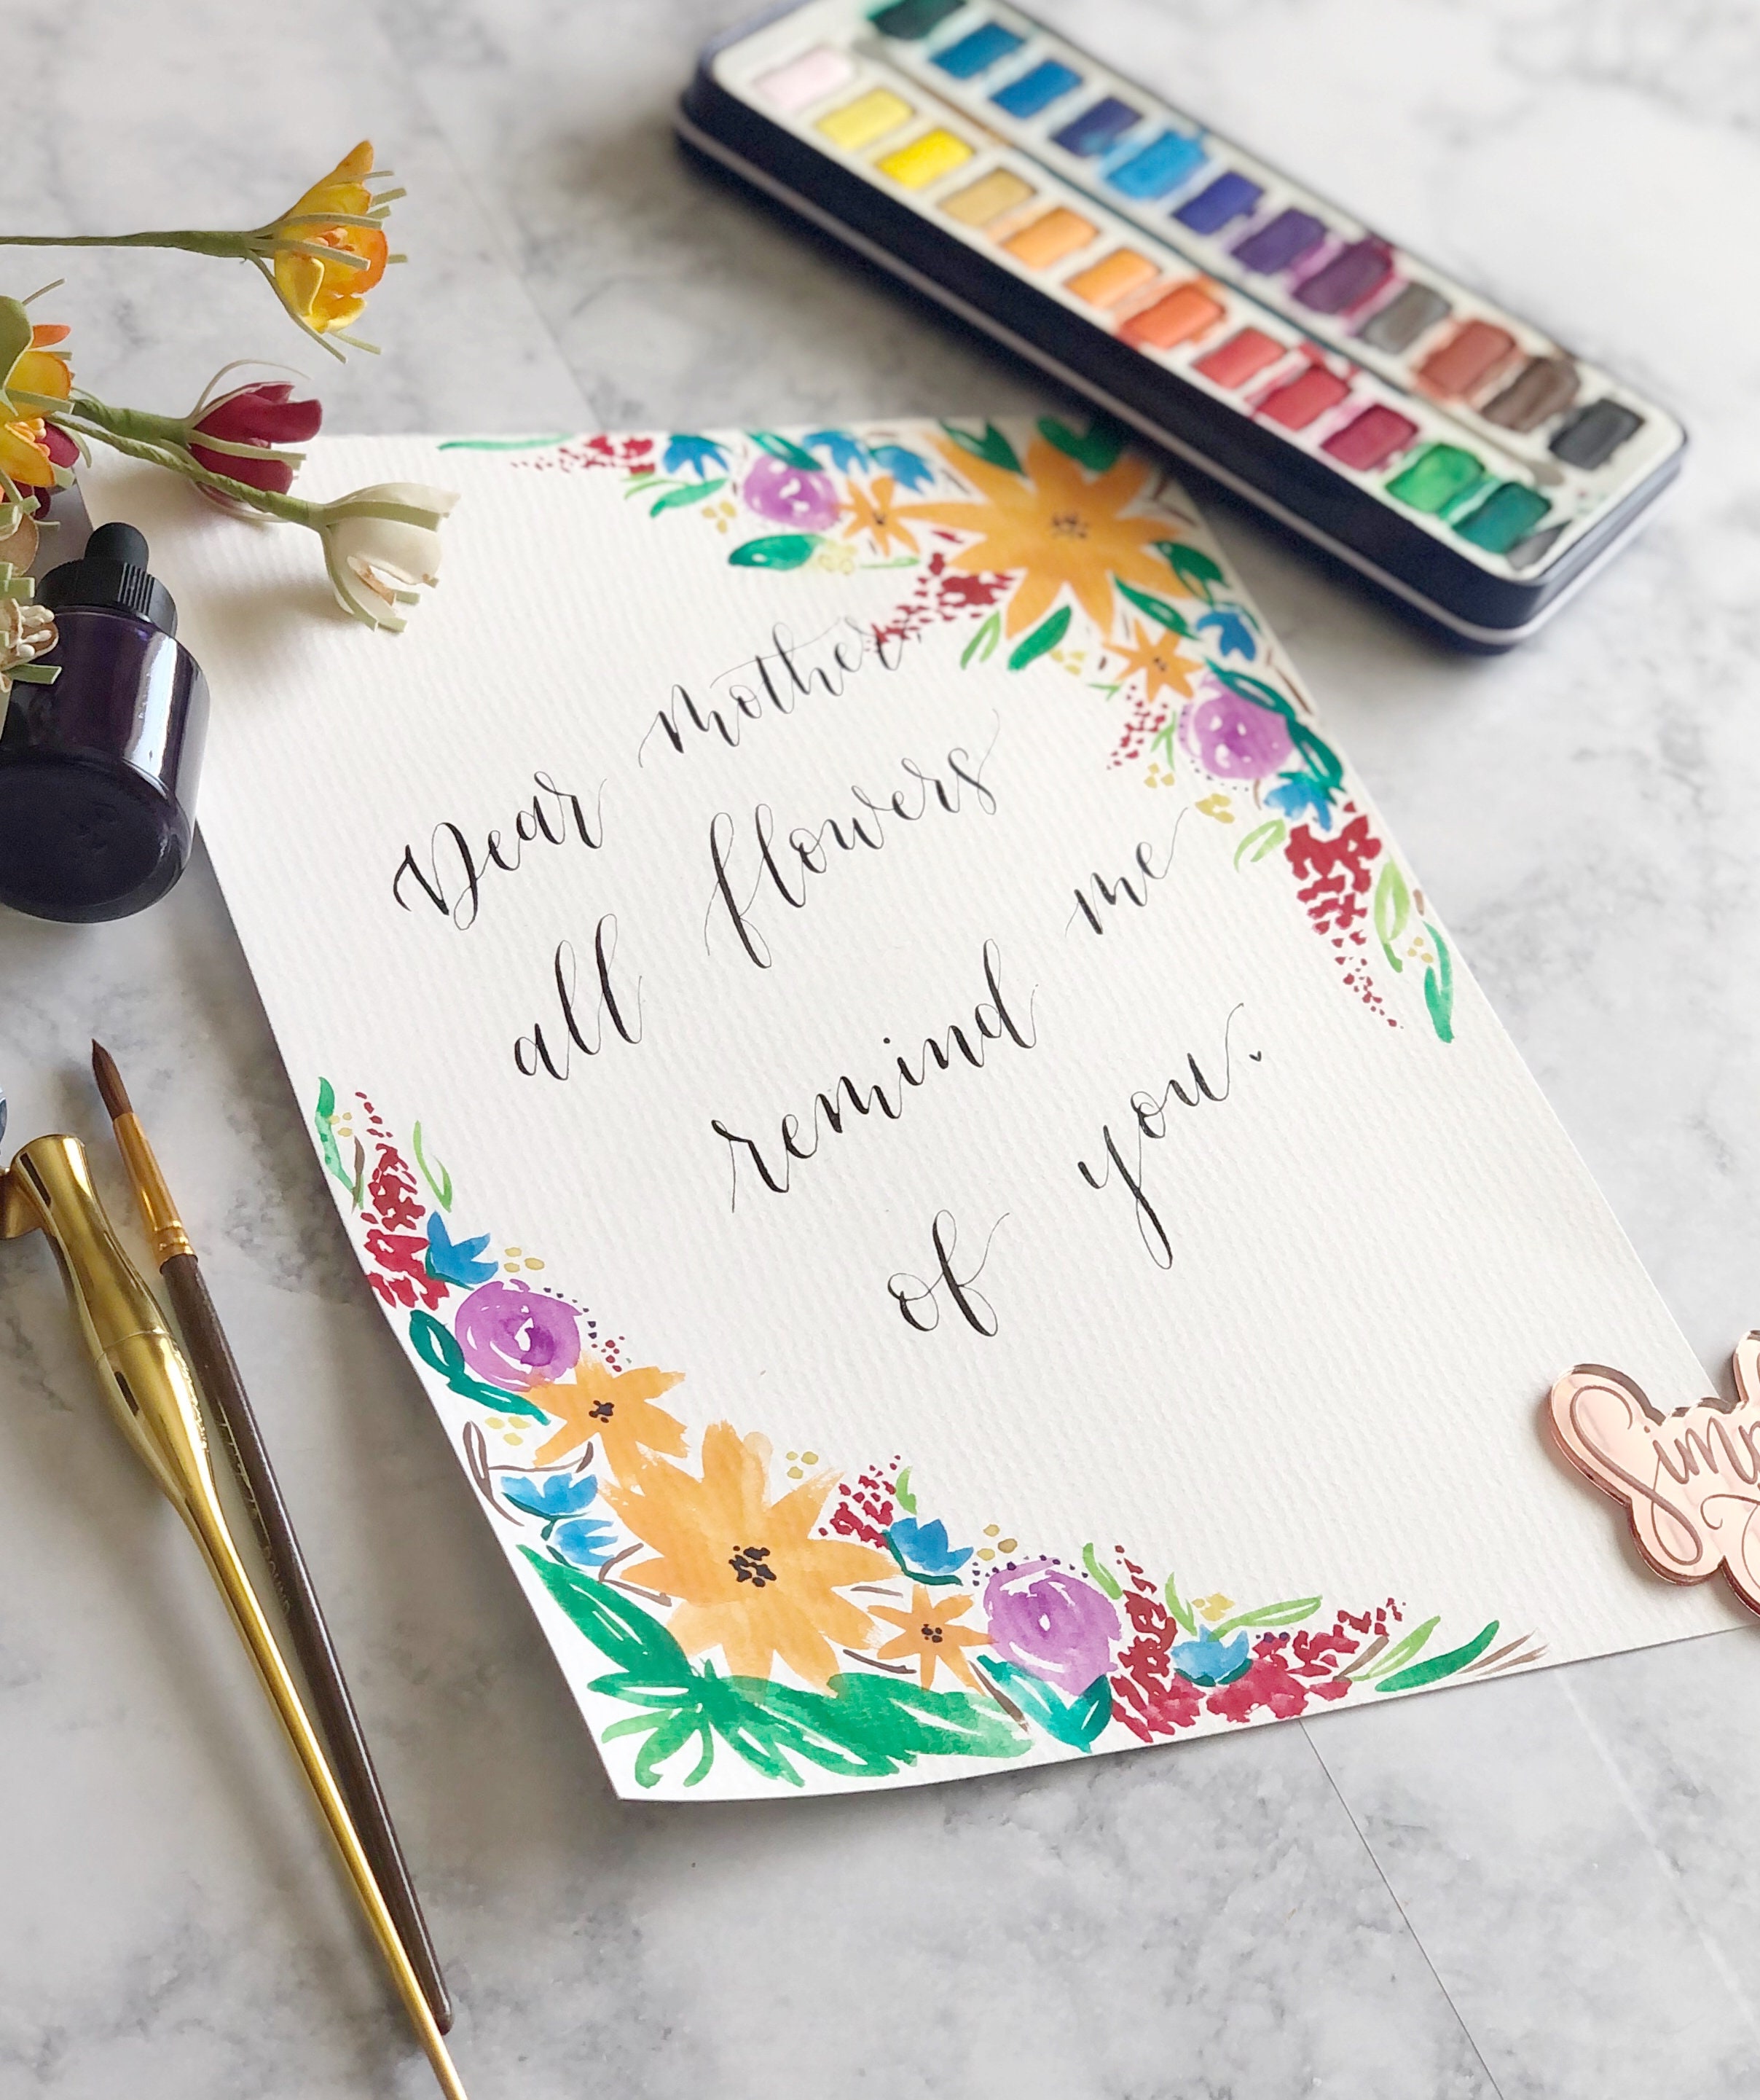 Dear mother
all flowers
remind me
of you.